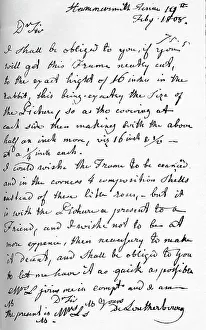 Hammersmith Terrace 19th
Feby. 1805.
Dr Sir
I shall be obliged to you, if you
will get this Frame neatly cut,
to the exact hight of 16 inches in the
rabbit, this being exactly the size of
the Picture, so as the covering at
each side then making both the above
half an inch more, viz 16 inch & ½ —
at a ¼ inch each.
I could wish the Frame to be carved
and in the corners 4 composition shells
instead of these little roses, — but it
is with the Picture a present to a
Friend, and I wish not to be at
more expence, then necessary to make
it decent, and shall be obliged to you
to let me have it as quick as possible
Mrs L joins me in compts and I am
Dr Sir
yours
the present is Mrs L's
De Loutherbourg